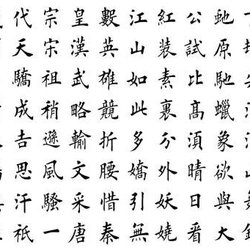 虵原馳蠟象欲與天
公試比高須晴日看
紅裝素裹分外妖嬈
江山如此多嬌引無
數英雄競折腰惜秦
皇漢武略輸文采唐
宗宋祖稍遜風騷一
代天驕成吉思汗祇